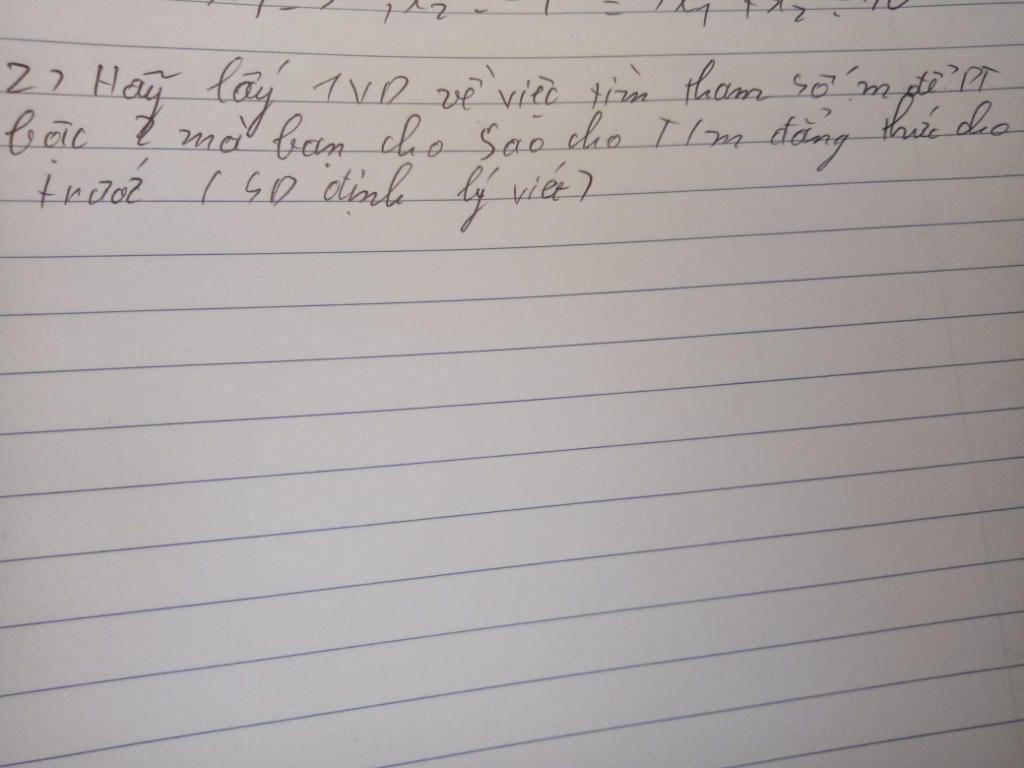 2) Hãy lấy 1VD về việc tìm tham số m để PT
bậc 2 mà bạn cho sao cho T/m đẳng thức cho
trước (SD định lý viét)